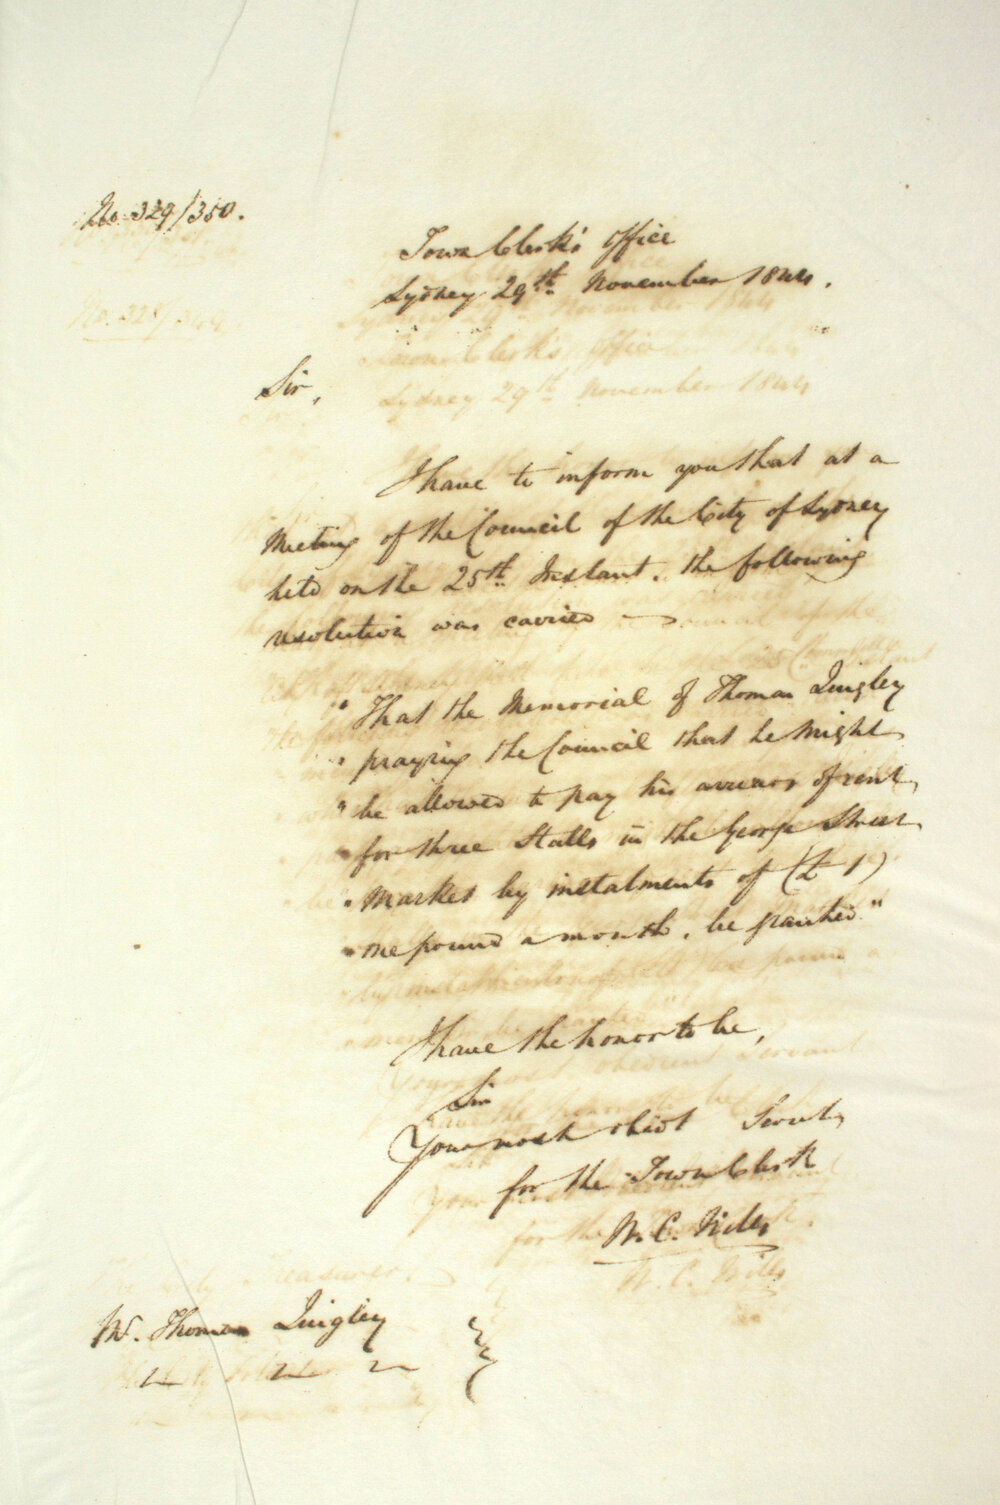 No. 329/350.
Town Clerk's Office
Sydney 29th November 1844.
Sir,
I have to inform you that at a
Meeting of the Council of the City of Sydney
held on the 25th Instant, the following
resolution was carried —
"That the Memorial of Thomas Quigley
"praying the Council that he might
"be allowed to pay his arrears of rent,
"for three Stalls in the George Street
"Market by instalments of (£1)
"one pound a month, be granted."
I have the honor to be,
Sir
Your most obedt Servt,
for the Town Clerk
W. C. Wills
Mr. Thomas Quigley